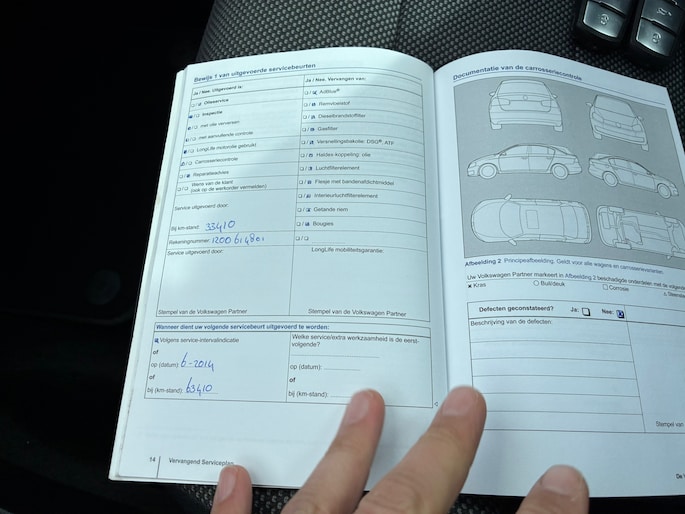 Bewijs 1 van uitgevoerde servicebeurten
Ja / Nee. Uitgevoerd is:
Olieservice
Inspectie
met olie verversen
met aanvullende controle
LongLife motorolie gebruikt
Carrosseriecontrole
Reparatieadvies
Wens van de klant
(ook op de werkorder vermelden)
Service uitgevoerd door:
Bij km-stand: 33410
Rekeningnummer:
Service uitgevoerd door:
Stempel van de Volkswagen Partner
Ja / Nee. Vervangen van:
AdBlue®
Remvloeistof
Dieselbrandstoffilter
Gasfilter
Versnellingsbakolie: DSG®, ATF
Haldex koppeling: olie
Luchtfilterelement
Flesje met bandenafdichtmiddel
Interieurluchtfilterelement
Getande riem
Bougies
LongLife mobiliteitsgarantie:
Stempel van de Volkswagen Partner
Wanneer dient uw volgende servicebeurt uitgevoerd te worden:
Volgens service-intervalindicatie
of
op (datum): 6-2014
of
bij (km-stand): 63410
Welke service/extra werkzaamheid is de eerst-
volgende?
op (datum):
of
bij (km-stand):
14 Vervangend Serviceplan
Documentatie van de carrosseriecontrole
Afbeelding 2 Principeafbeelding. Geldt voor alle wagens en carrosserievarianten.
Uw Volkswagen Partner markeert in Afbeelding 2 beschadigde onderdelen met de volgende
Kras Buil/deuk Corrosie
Defecten geconstateerd? Ja: Nee:
Beschrijving van de defecten:
Stempel van
De